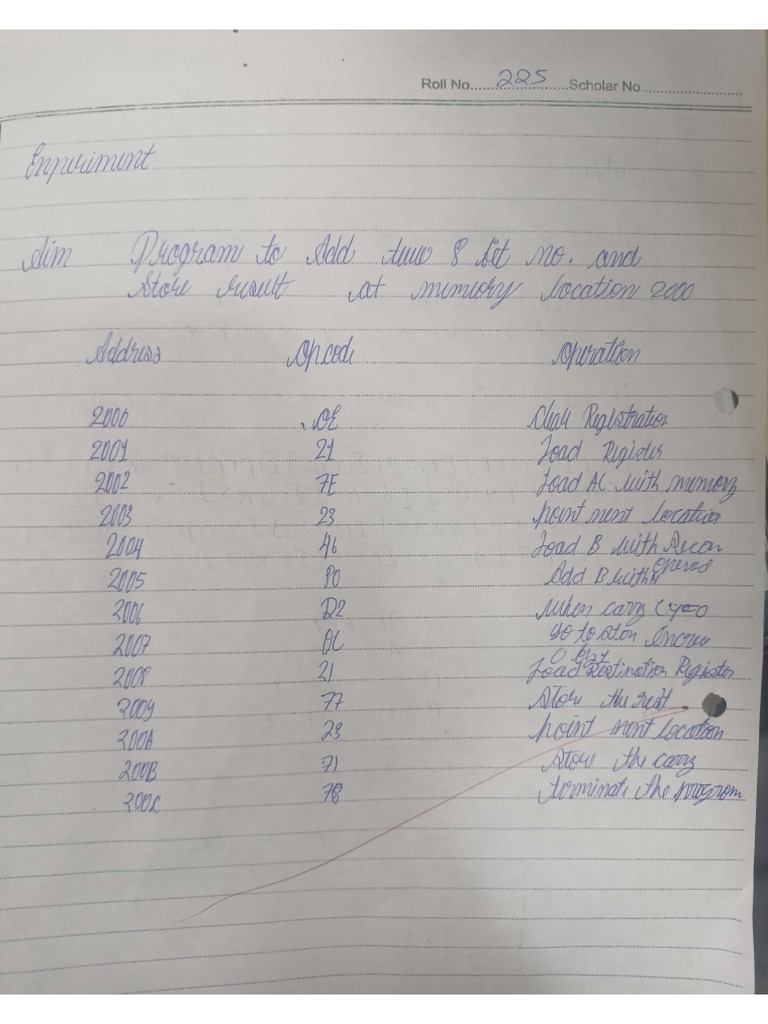 Roll No. 225 Scholar No.
Experiment
Aim Program to Add two 8 bit no. and
Store result at memory location 2000
Address Opcode Operation
2000 OE Clear Registration
2001 21 Load Register
2002 7E Load AC with memory
2003 23 point next location
2004 46 Load B with
2005 80 Add B with
2006 D2 when carry CY=0
2007 OC go to
2008 21 Load Destination Register
2009 77 Store the
200A 23 point next location
200B 71 Store the carry
200C 76 terminate the program